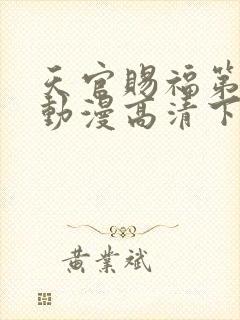 天官賜福第
動漫高清下
黃業斌